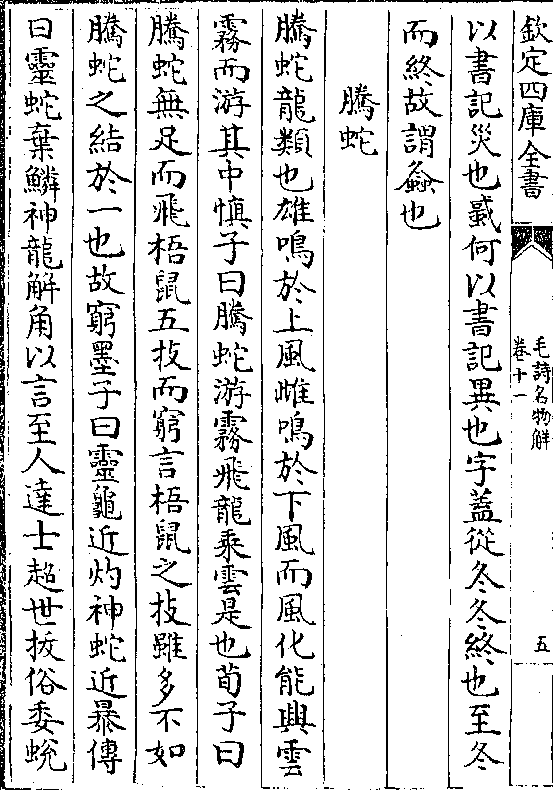 欽定四庫全書
毛詩名物解
卷十一
五
以書記災也蜮何以書記異也字蓋從冬冬終也至冬
而終故謂螽也
騰蛇
騰蛇龍類也雄鳴於上風雌鳴於下風而風化能興雲
霧而游其中慎子曰騰蛇游霧飛龍乘雲是也荀子曰
騰蛇無足而飛梧鼠五技而窮言梧鼠之技雖多不如
騰蛇之結於一也故窮墨子曰靈龜近灼神蛇近暴傳
曰靈蛇棄鱗神龍解角以言至人達士超世拔俗委蛻